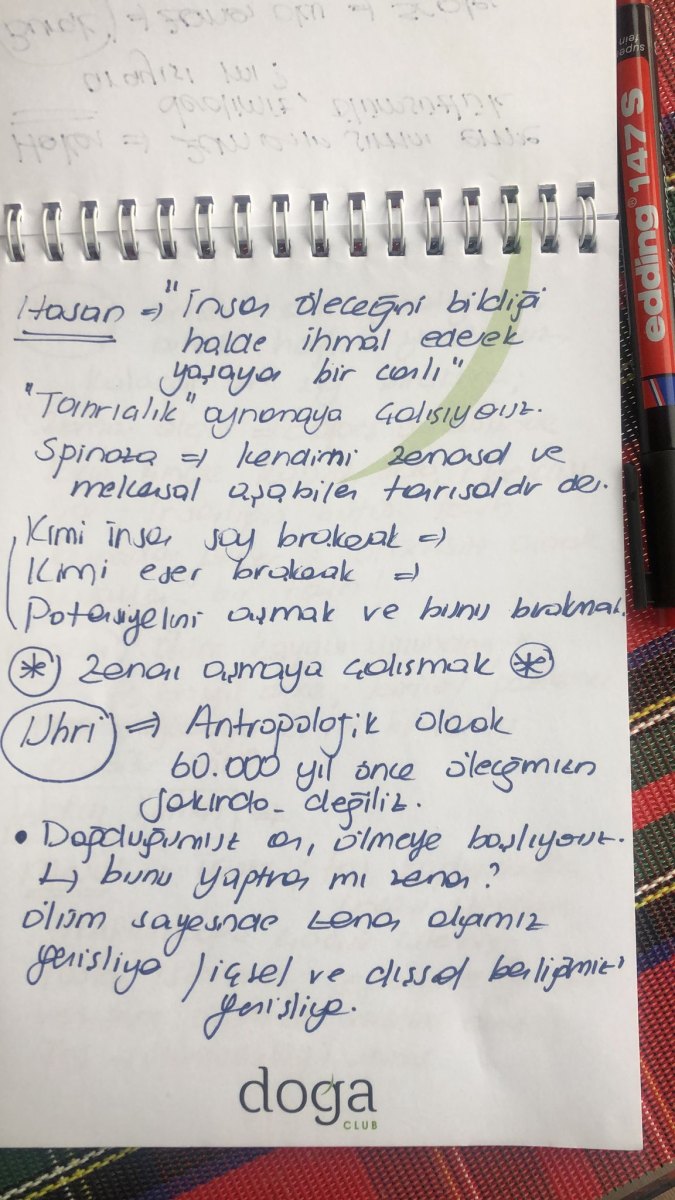 Hasan => "İnsan öleceğini bildiği
halde ihmal ederek
yaşayan bir canlı"
"Tanrıcılık" oynamaya çalışıyoruz.
Spinoza => kendimi zamansal ve
mekansal aşabilen tanrısaldır der.
Kimi insan soy bırakarak =>
Kimi eser bırakarak =>
Potansiyelini aşmak ve bunu bırakmak.
* zamanı aşmaya çalışmak *
=> Antropolojik olarak
60.000 yıl önce öleceğimizin
farkında değiliz.
• Doğduğumuz an, ölmeye başlıyoruz.
↳ bunu yaptıran mı zaman?
ölüm sayesinde zaman algımız
genişliyor / içsel ve dışsal benliğimiz
genişliyor.
doga
CLUB
edding® 147 S